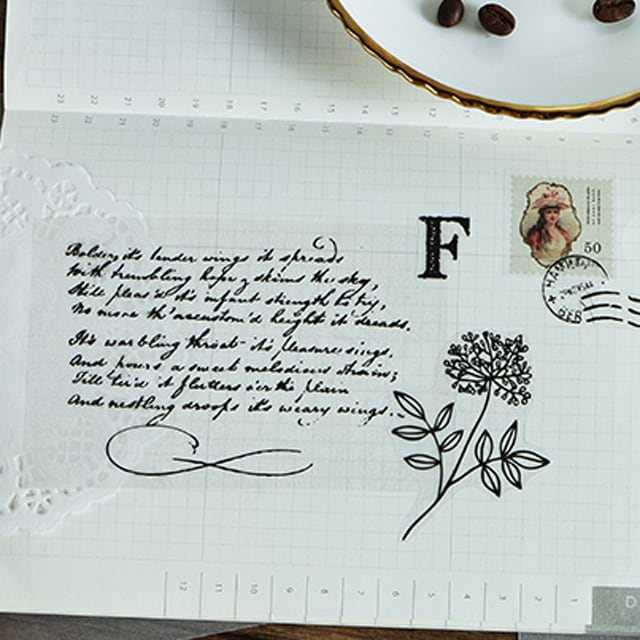 its tender wings it spreads
With trembling hope, skims the sky,
Still pleas'd its infant strength to try,
No more th'accustom'd height it dreads.
It's warbling throat it's pleasure sings,
And pours a sweet melodious strain;
Till tir'd it flutters o'er the plain
And nestling droops it's weary wings.
F
50
23 22 21 20 19 18 17 16 15 14 13 12 11 10 9 8 7
12 11 10 9 8 7 6 5 4 3 2 1